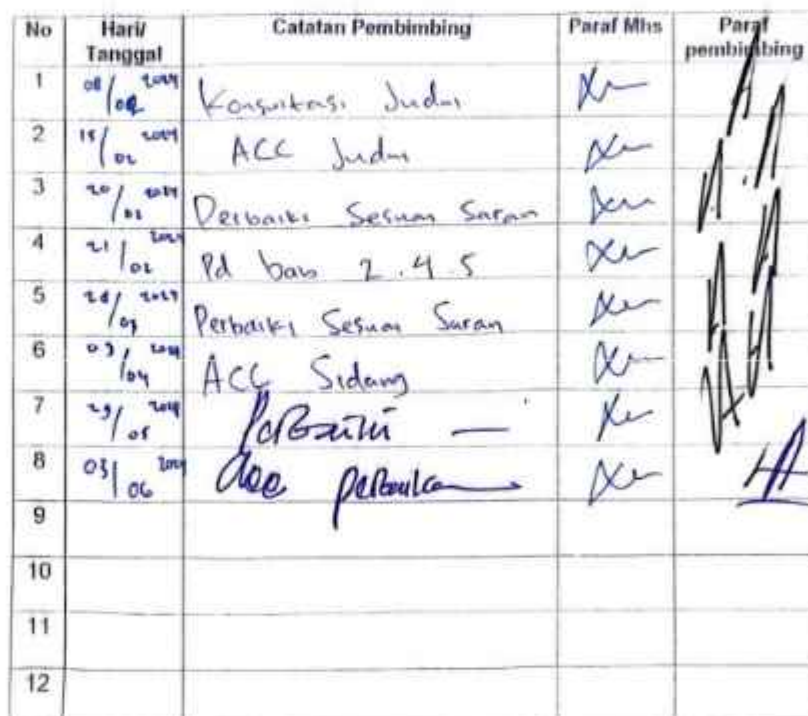 No Hari/ Tanggal Catatan Pembimbing Paraf Mhs Paraf pembimbing
1 08/02 2024 Konsultasi Judul
2 15/02 2024 ACC Judul
3 20/02 2024 Perbaiki Sesuai Saran
4 21/02 2024 Pd bab 2.4.5
5 28/03 2024 Perbaiki Sesuai Saran
6 03/04 2024 ACC Sidang
7 29/05 2024
8 03/06 2024 Acc perbaikan
9
10
11
12